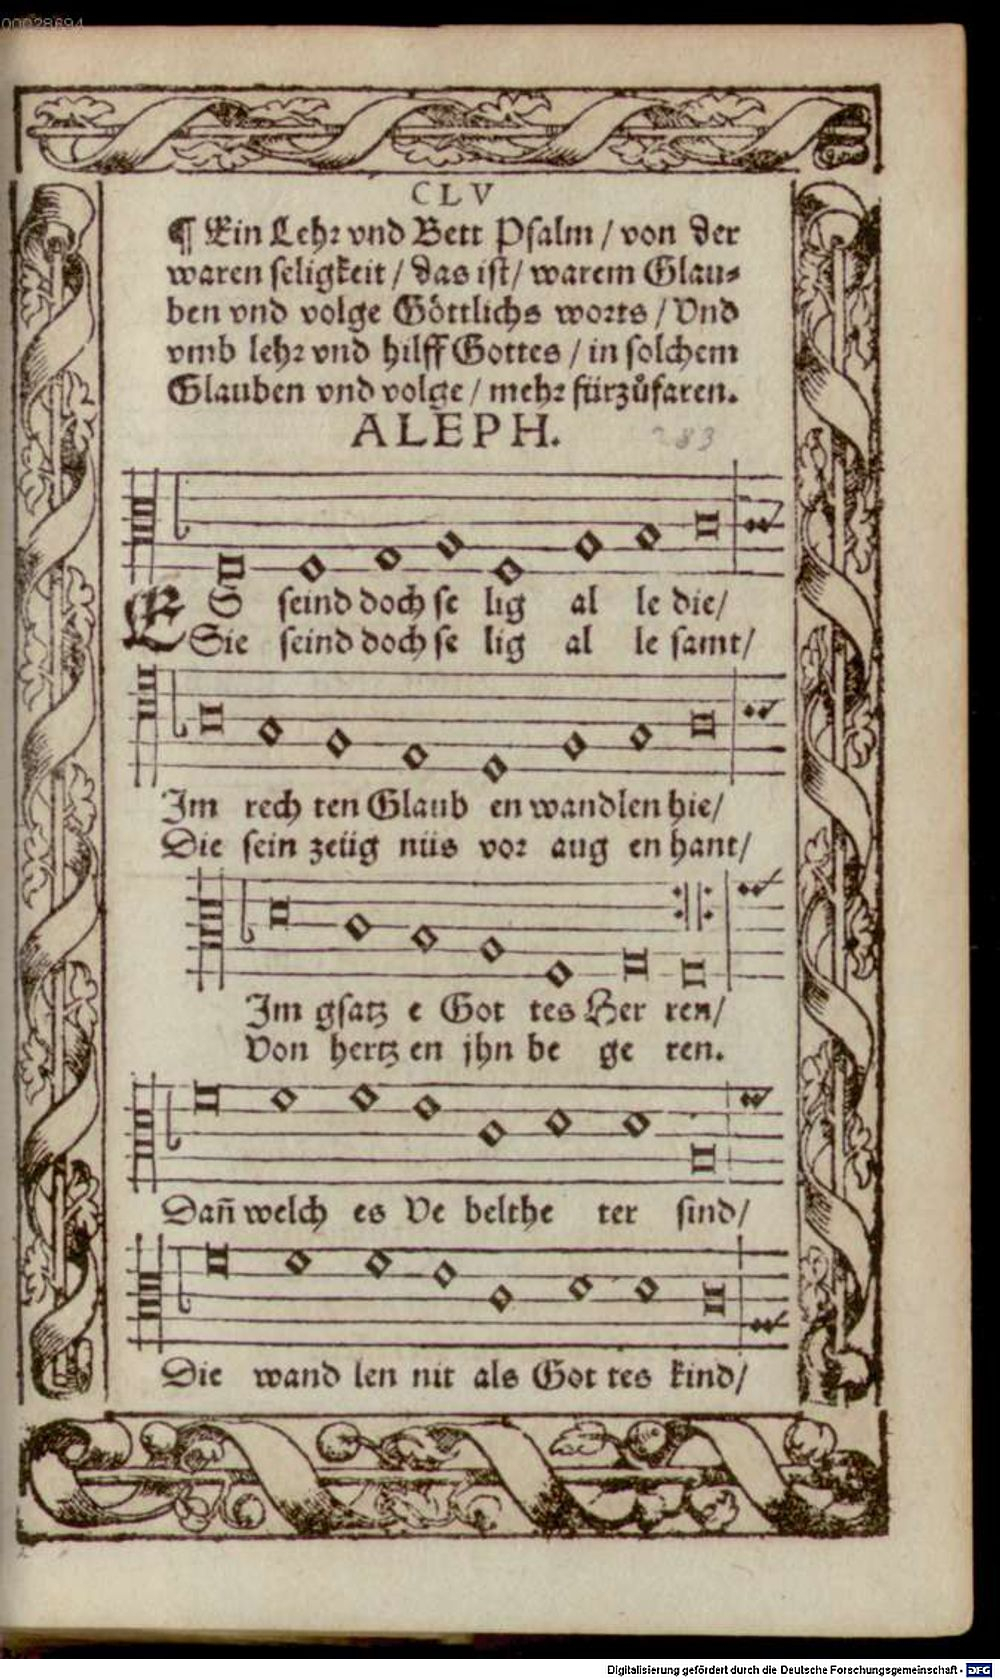 00028694
CLV
¶ Ein Lehr vnd Bett Psalm / von der
waren seligkeit / das ist / warem Glau⸗
ben vnd volge Göttlichs worts / Vnd
vmb lehr vnd hilff Gottes / in solchem
Glauben vnd volge / mehr fürzůfaren.
ALEPH. 283
ES seind doch se lig al le die /
Sie seind doch se lig al le samt /
Im rech ten Glaub en wandlen hie /
Die sein zeüg nüs vor aug en hant /
Im gsatz e Got tes Her ren /
Von hertz en jhn be ge ren.
Dañ welch es Ve belthe ter sind /
Die wand len nit als Got tes kind /
Digitalisierung gefördert durch die Deutsche Forschungsgemeinschaft - DFG